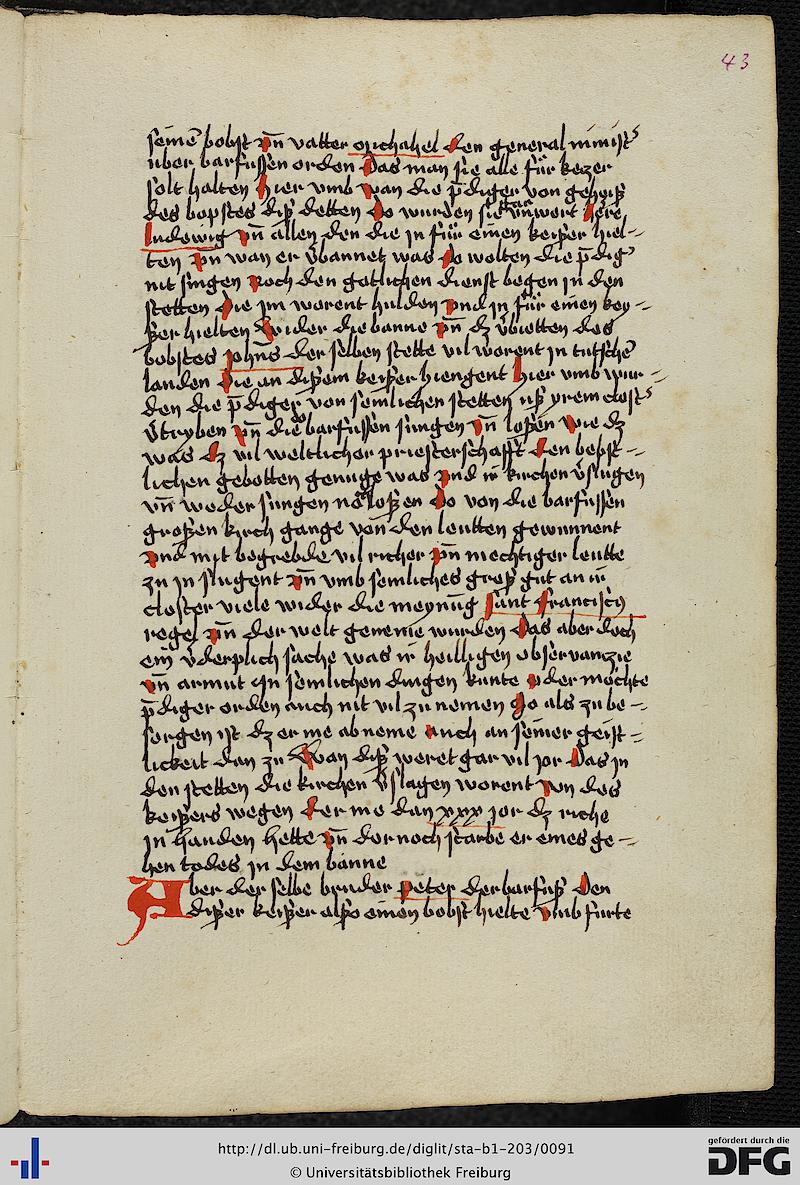 43
seinē bobst vn̄ vatter michahel den general minist᷒
über barfuſſen orden Das man sie alle für kezer
solt halten Hier vmb wan die p̄diger von geheiß
des bopstes diß detten Do wurden sie gar vnwert Here
ludewig vn̄ allen den die in für einen keißer hiel-
ten Vn̄ wan er v̄bannet was So wolten die p̄dig᷒
nit singen Noch den gotlichen dienst began in den
stetten Die im worent hulden Vnd in für einen key-
ßer hielten Wider die banne vn̄ dz v̄bietten des
bobstes john̄s der selben stette vil worent in tutschē
landen Die an dißem keißer hiengent Hier vmb wur-
den die p̄diger von semlichen stetten uß yrem clost᷒
v̄tryben vn̄ die barfuſſen sungen vn̄ loßen Wie dz
was dz vil weltlicher priesterschafft den bebst-
lichen gebotten genuge was Vnd ir kirchen v̄slugen
vn̄ weder sungen noch loßen Do von die barfuſſen
großen kirch gange von den leutten gewunnent
Vnd mit begrebde vil richer vn̄ mechtiger leutte
zu in slugent Vn̄ vmb semliches groß gut an ir
closter viele wider die meynūg Sant Franciscꝰ
regel Vn̄ der welt geneme wurden Das aber doch
ein v̄derplich sache was ir heilligen observanczie
vn̄ armut In semlichen dingen kunte oder mochte
p̄diger orden auch nit vil zu nemen So als zu be-
sorgen ist dz er me ab neme Auch an seiner geist-
lickeit dan zu Wan diß weret gar vil jor Das in
den stetten die kirchen v̄slagen worent Von des
keißers wegen Der me dan xxx jor dz riche
in handen hette Vn̄ dor noch starbe er eines ge-
hen todes in dem banne
Aber der selbe bruder Peter der barfuß Den
dißer keißer alßo einen bobst hielte Vmb furte
http://dl.ub.uni-freiburg.de/diglit/sta-b1-203/0091
© Universitätsbibliothek Freiburg
gefördert durch die
DFG